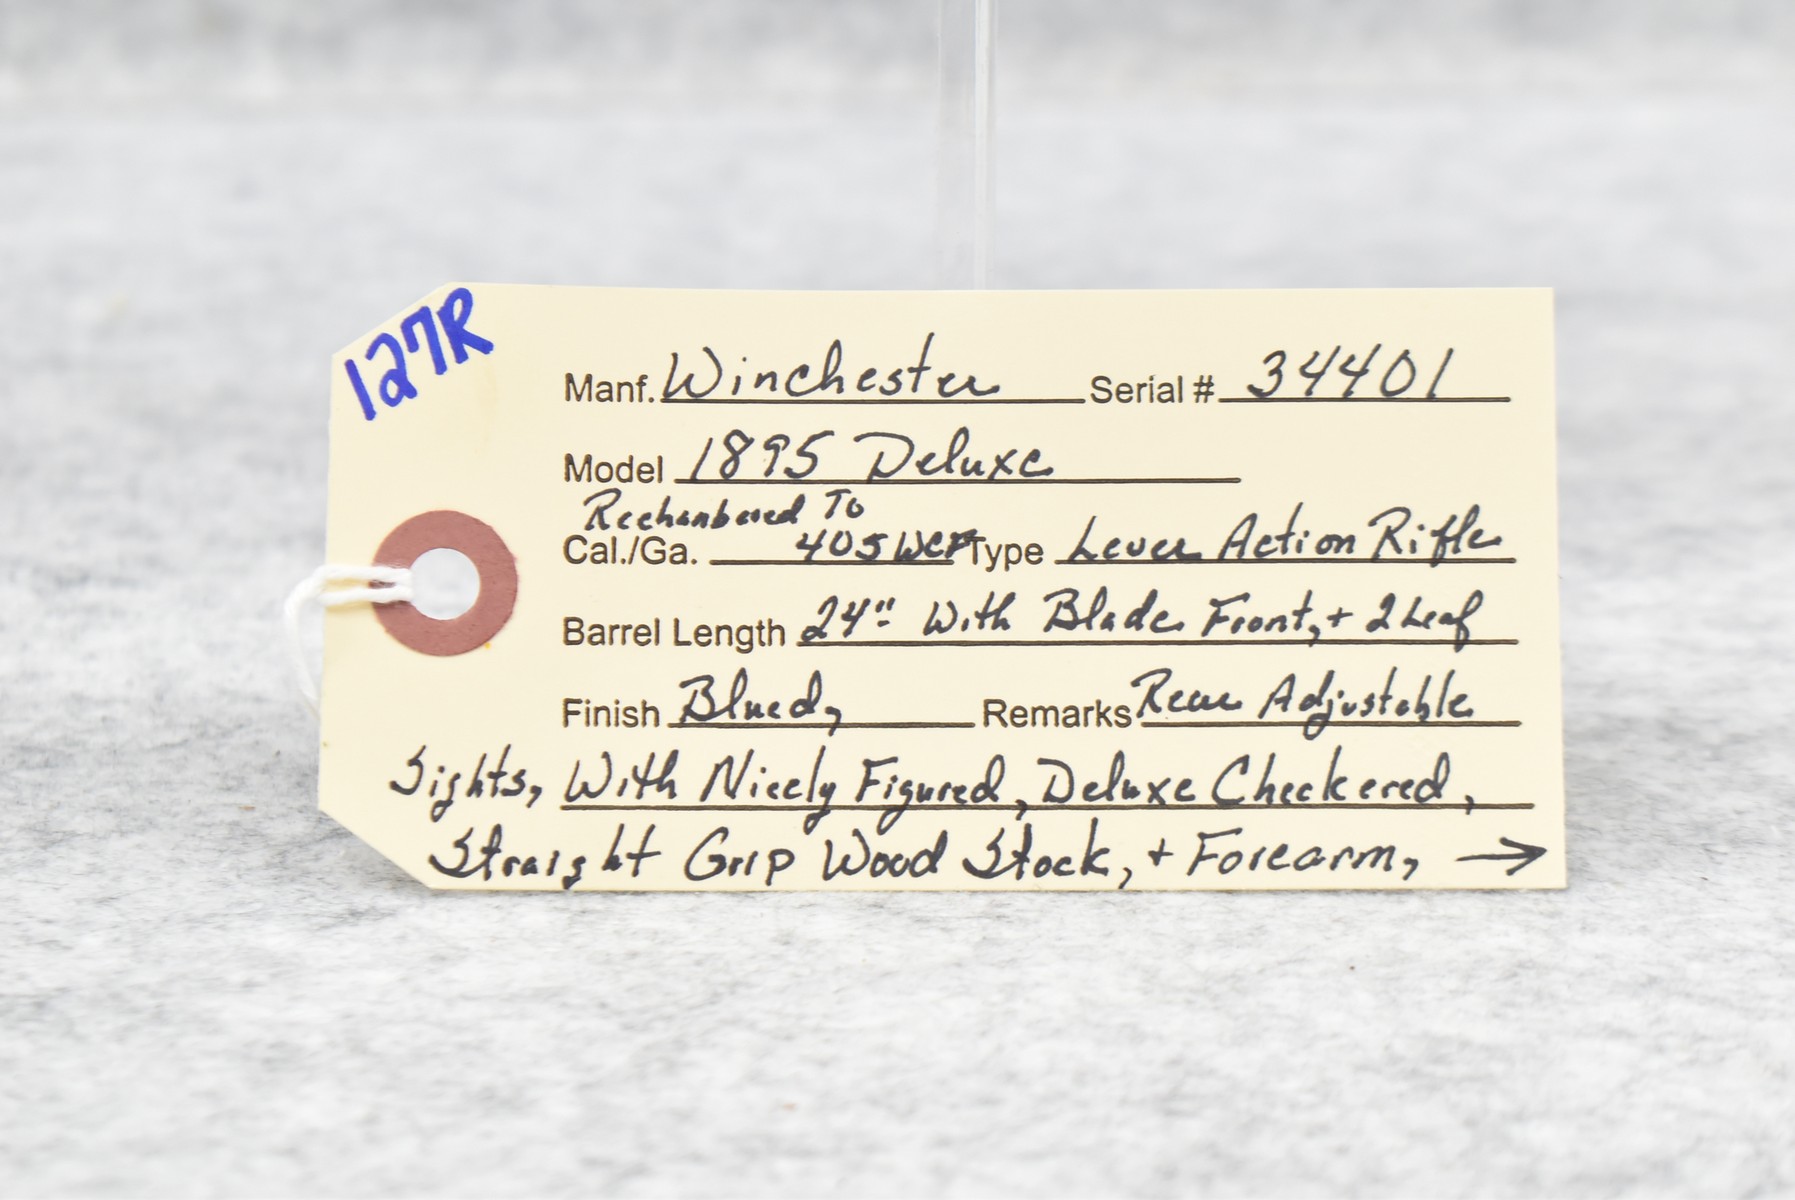 127R
Manf. Winchester Serial # 34401
Model 1895 Deluxe
Rechambered To
Cal./Ga. 405 WCF Type Lever Action Rifle
Barrel Length 24" With Blade Front, + 2 Leaf
Finish Blued, Remarks Rear Adjustable
Sights, With Nicely Figured, Deluxe Checkered,
Straight Grip Wood Stock, + Forearm, →